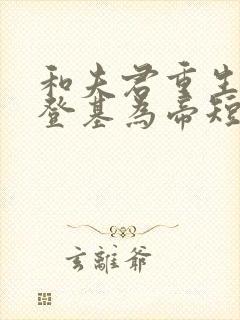 和夫君重生
登基為帝短
玄離爺